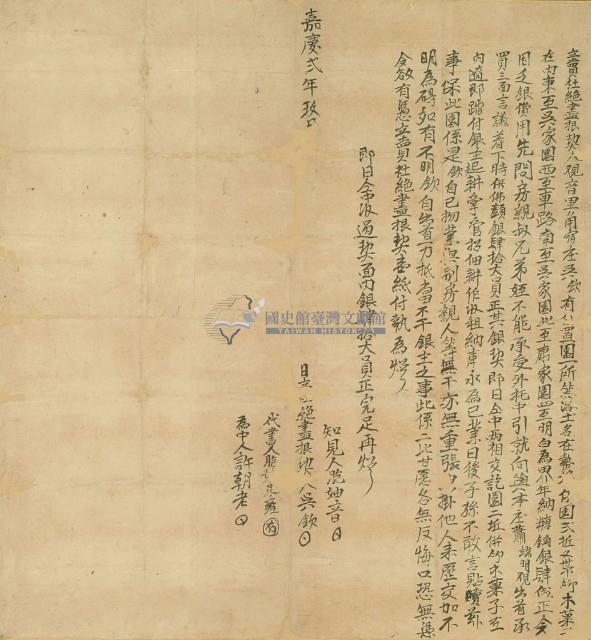 立賣杜絕盡根契人觀音里角宿庄吳欽有自置園一所坐落土名在
在內東至吳家園西至車路南至吳家園北至蕭家園四至明白為界年納糖餉銀肆錢正今
因乏銀費用先問房親叔兄弟姪不能承受外托中引就向與本庄蕭
買三面言議着下時價佛頭銀肆拾大員正其銀契即日仝中兩相交訖園二坵併帶木菓子至
內適即踏付銀主起耕掌管招佃耕作收租納課永為己業日後子孫不敢言貼贖茲
事保此園係是欽自己物業與別房親人等無干亦無重張典掛他人來歷交加不
明為碍如有不明欽自出首力抵當不干銀主之事此係二比甘愿各無反悔口恐無憑
今欲有憑立盡賣杜絕盡根契壹紙付執為炤
即日仝中收過契面內銀肆拾大員正完足再炤
嘉慶弍年玖
知見人
日立杜絕盡根契人吳欽
代書人
為中人許朝老
國史館臺灣文獻館
TAIWAN HISTORICA